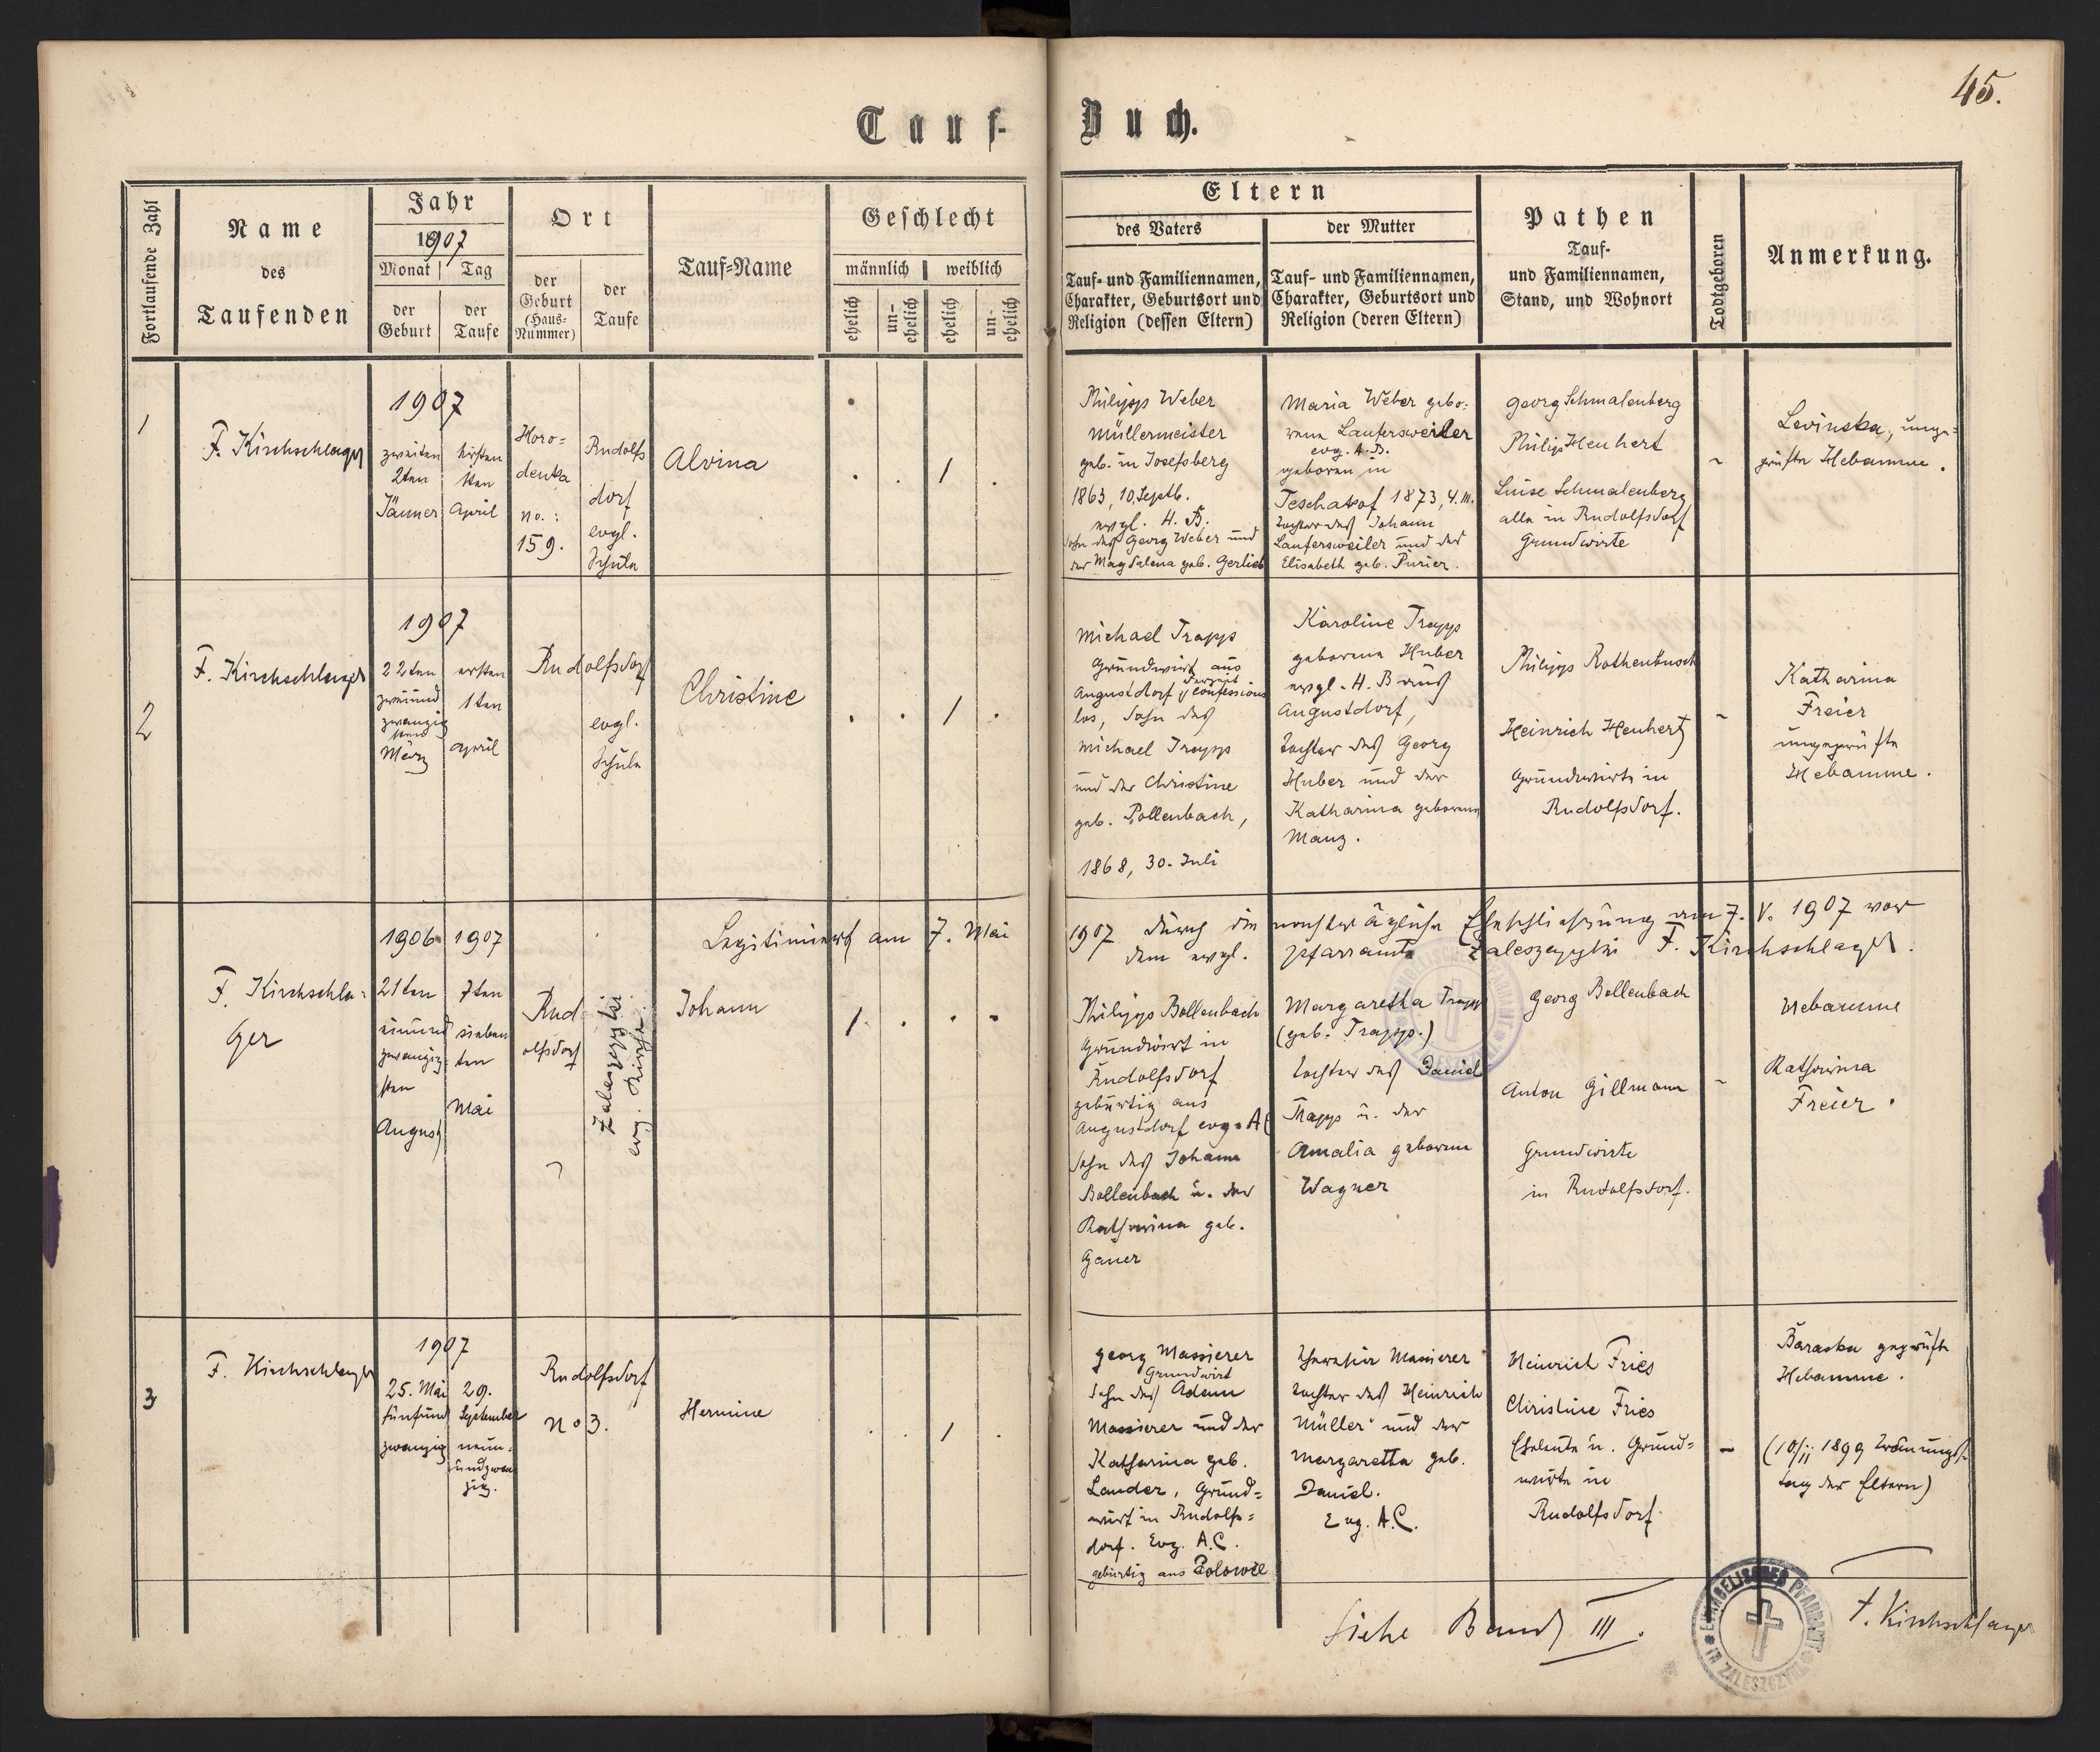 45.
Tauf-Buch.
Fortlaufende Zahl
Name
des
Taufenden
Jahr
1907
Monat
Tag
der
Geburt
der
Taufe
Ort
der
Geburt
(Haus-
Nummer)
der
Taufe
Tauf=Name
Geschlecht
männlich
weiblich
ehelich
un-
ehelich
ehelich
un-
ehelich
Eltern
des Vaters
der Mutter
Tauf- und Familiennamen,
Charakter, Geburtsort und
Religion (dessen Eltern)
Tauf- und Familiennamen,
Charakter, Geburtsort und
Religion (deren Eltern)
Pathen
Tauf-
und Familiennamen,
Stand, und Wohnort
Todtgeboren
Anmerkung.
1
F. Kirchschlager
1907
zweiten
2ten
Jänner
ersten
1ten
April
Horo=
denka
No.:
159.
Rudolfs
dorf
evgl.
Schule
Alvina
/
Philipp Weber
Müllermeister
geb. in Josefsberg
1863, 10. Septb.
evgl. H. B.
Sohn des Georg Weber und
der Magdalena geb. Gerlieb
Maria Weber gebo=
rene Laufersweiler
evg. A. B.
geboren in
1873, 4. III.
Tochter des Johann
Laufersweiler und der
Elisabeth geb. Purier.
Georg Schmalenberg
Philip Heuhert
Luise Schmalenberg
alle in Rudolfsdorf
Grundwirte
Levinska, unge=
prüfte Hebamme.
2
F. Kirchschlager
1907
22ten
zweiund
zwanzig
sten
März
ersten
1ten
April
Rudolfsdorf
evgl.
Schule
Christine
/
Michael Trapp
Grundwirt aus
Augustdorf derzeit confessions
los, Sohn des
Michael Trapp
und der Christine
geb. Pollenbach,
1868, 30. Juli
Karoline Trapp
geborene Huber
evgl. H. B aus
Augustdorf,
Tochter des Georg
Huber und der
Katharina geborene
Manz.
Philipp Rothenbusch
Heinrich Heuhert
Grundwirte in
Rudolfsdorf.
Katharina
Freier
ungeprüfte
Hebamme.
Legitimiert am 7. Mai 1907 durch die nachträgliche Eheschließung am 7. V. 1907 vor
dem evgl. Pfarramte Zaleszczyki F. Kirchschlager.
F. Kirchschla=
ger
1906
21ten
einund
zwanzig
sten
August
1907
7ten
sieben
ten
Mai
Rud
olfsdorf
Zaleszczyki
evg. Kirche
Johann
/
Philipp Bollenbach
Grundwirt in
Rudolfsdorf
gebürtig aus
Augustdorf evg. AC
Sohn des Johann
Bollenbach u. der
Katharina geb.
Gauer
Margaretha Trapp
(geb. Trapp.)
Tochter des Daniel
Trapp u. der
Amalia geborene
Wagner
Georg Bollenbach
Anton Gillmann
Grundwirte
in Rudolfsdorf.
Hebamme
Katharina
Freier.
3
F. Kirchschlager
1907
25. Mai
fünfund
zwanzig
29.
September
neun=
undzwan
zig.
Rudolfsdorf
No 3.
Hermine
/
Georg Massierer
Grundwirt
Sohn des Adam
Massierer und der
Katharina geb.
Lander, Grund=
wirt in Rudolfs=
dorf. Evg. A.C.
gebürtig aus
Massierer
Tochter des Heinrich
Müller und der
Margaretha geb.
Daniel.
Evg. A.C.
Heinrich Fries
Christine Fries
Eheleute u. Grund=
wirte in
Rudolfsdorf.
Baraska geprüfte
Hebamme.
(10/II 1899 Trauungs
tag der Eltern)
Siehe Band III.
EVANGELISCHES PFARRAMT
IN ZALESZCZYKI
F. Kirchschlager